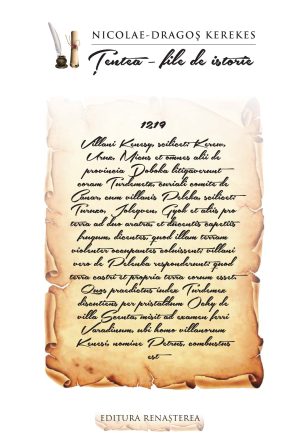 NICOLAE-DRAGOȘ KEREKES
Țentea - file de istorie
1219
Villani Kenesy, scilicet: Kerem,
Urna, Micus et omnes alii de
provincia Doboka litigaverunt
coram Turdemetz, curiali comite de
Canar cum villanis Peleka, scilicet:
Turuco, Jolegven, Gyok et aliis pro
terra ad duo aratra, et ducentis capetiis
frugum, dicentes, quod illam terram
violenter occupantes coluissent villani
vero de Pelenka responderunt: quod
terra castri et propria terra eorum esset.
Quos praedictus index Turdemex
discutiens per pristaldum Ochy de
villa Scenta, misit ad examen ferri
Varadinum, ubi homo villanorum
Kenesi nomine Petrus, combustus
est
EDITURA RENAȘTEREA